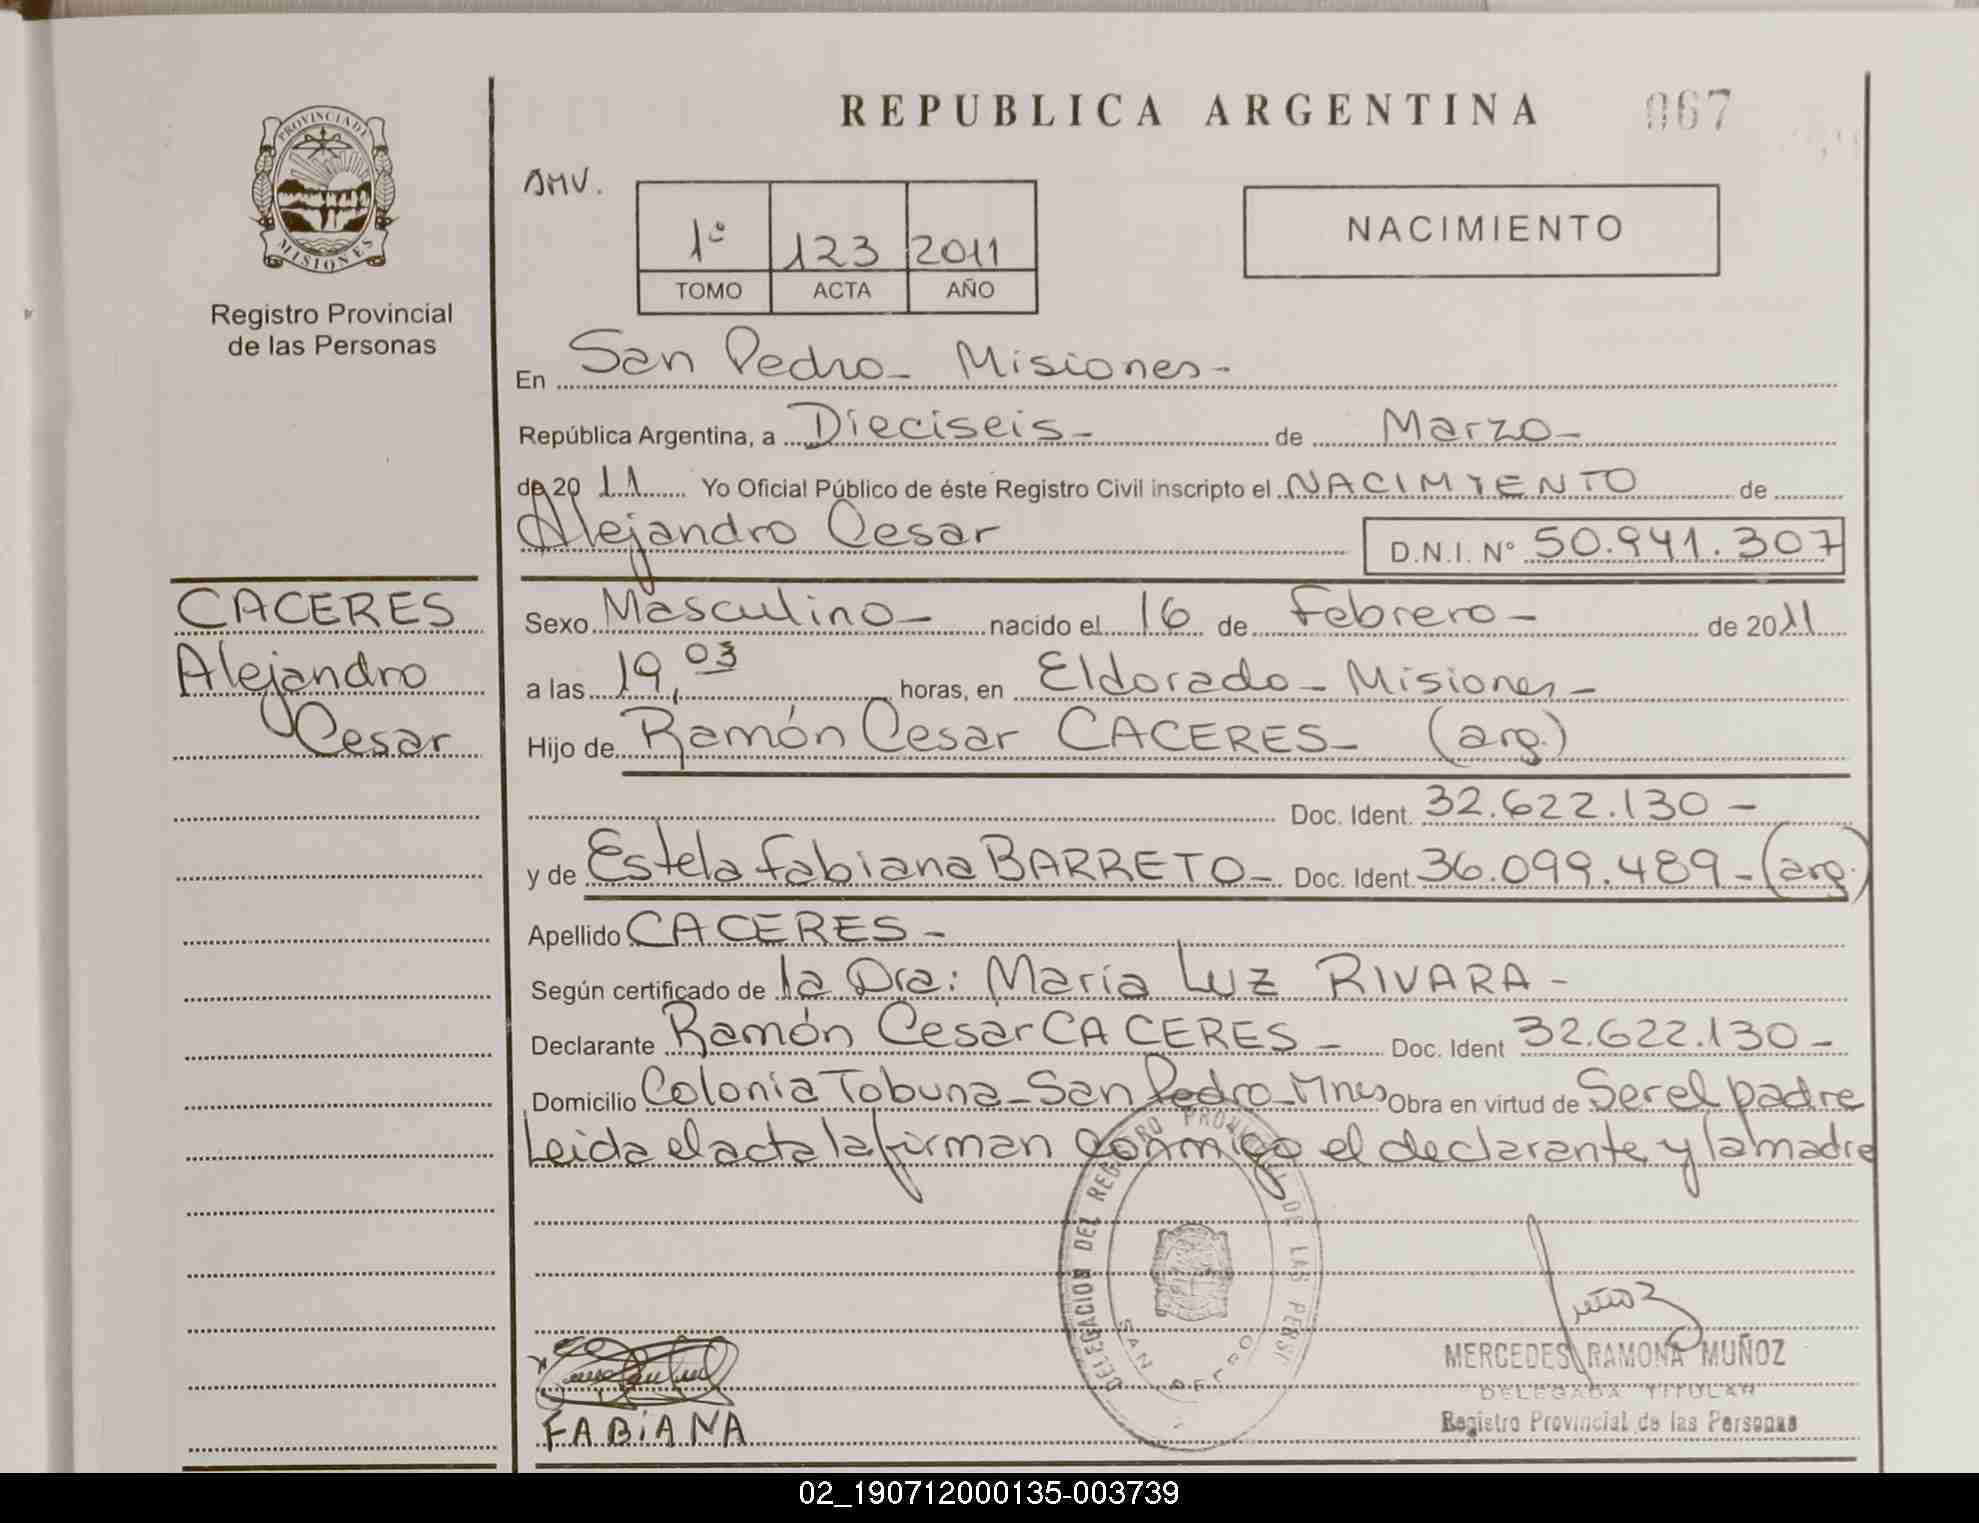 REPUBLICA ARGENTINA
067
PROVINCIA DE
MISIONES
Registro Provincial
de las Personas
AMV.
1º 123 2011
TOMO ACTA AÑO
NACIMIENTO
En San Pedro - Misiones -
República Argentina, a Dieciseis - de Marzo -
de 20 11 Yo Oficial Público de éste Registro Civil inscripto el NACIMIENTO de
Alejandro Cesar D.N.I. Nº 50.941.307
CACERES
Alejandro
Cesar
Sexo Masculino - nacido el 16 de Febrero - de 2011
a las 19,03 horas, en Eldorado - Misiones -
Hijo de Ramón Cesar CACERES - (arg.)
Doc. Ident. 32.622.130 -
y de Estela Fabiana BARRETO - Doc. Ident. 36.099.489 - (arg.)
Apellido CACERES -
Según certificado de la Dra: María Luz RIVARA -
Declarante Ramón Cesar CACERES - Doc. Ident 32.622.130 -
Domicilio Colonia Tobuna - San Pedro - Mnes Obra en virtud de Ser el padre
Leida el acta la firman conmigo el declarante y la madre
DELEGACION DEL REGISTRO PROVINCIAL DE LAS PERS
SAN PEDRO
Muñoz
MERCEDES RAMONA MUÑOZ
DELEGADA TITULAR
Registro Provincial de las Personas
FABIANA
02_190712000135-003739